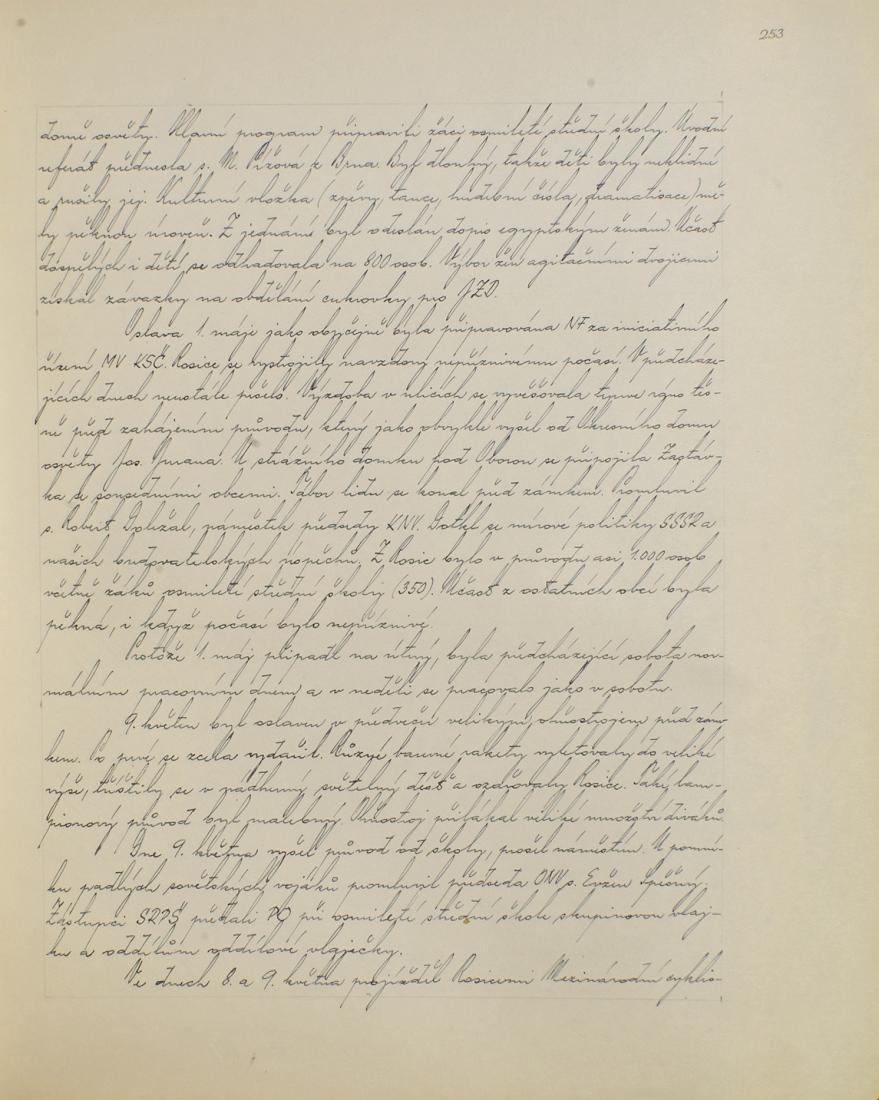 253
domě osvěty. Hlavní program připravili žáci osmileté střední školy. Úvodní
referát přednesla s. M. Řížová z Brna. Byl dlouhý, takže děti byly neklidné
a rušily jej. Kulturní vložka (zpěvy, tance, hudební čísla, dramatisace) mě-
ly pěknou úroveň. Z jednání byl odeslán dopis egyptským ženám. Účast
dospělých i dětí se odhadovala na 800 osob. Výbor žen agitačními dvojicemi
získal závazky na obdělání cukrovky pro JZD.
Oslava 1. máje jako obyčejně byla připravována NF za iniciativního
řízení MV KSČ. Rosice se vystrojily navzdory nepříznivému počasí. V předcháze-
jících dnech neustále pršelo. Výzdoba v ulicích se vyvěšovala teprve ráno těs-
ně před zahájením průvodu, který jako obvykle vyšel od Okresního domu
osvěty Jos. Jurana. U strážního domku pod Oborou se připojila Zastáv-
ka se sousedními obcemi. Tábor lidu se konal před zámkem. Promluvil
s. Robert Doležal, náměstek předsedy KNV. Dotkl se mírové politiky SSSR a
našich budovatelských úspěchů. Z Rosic bylo v průvodu asi 1.000 osob
včetně žáků osmileté střední školy (350). Účast z ostatních obcí byla
pěkná, i když počasí bylo nepříznivé.
Protože 1. máj připadl na úterý, byla předcházející sobota nor-
málním pracovním dnem a v neděli se pracovalo jako v sobotu.
9. květen byl oslaven v předvečer velikým ohňostrojem před zám-
kem. Po prvé se zcela vydařil. Různé barevné rakety vyletovaly do veliké
výše, tříštily se v nádherný světelný déšť a ozařovaly Rosice. Také lam-
pionový průvod byl malebný. Ohňostroj přilákal veliké množství diváků.
Dne 9. května vyšel průvod od školy, prošel náměstím. U pomní-
ku padlých sovětských vojáků promluvil předseda ONV s. Evžen Spěšný.
Zástupci SRPŠ předali PO při osmileté střední škole skupinovou vlaj-
ku a oddílům oddílové vlaječky.
Ve dnech 8. a 9. května projížděl Rosicemi Mezinárodní cyklis-